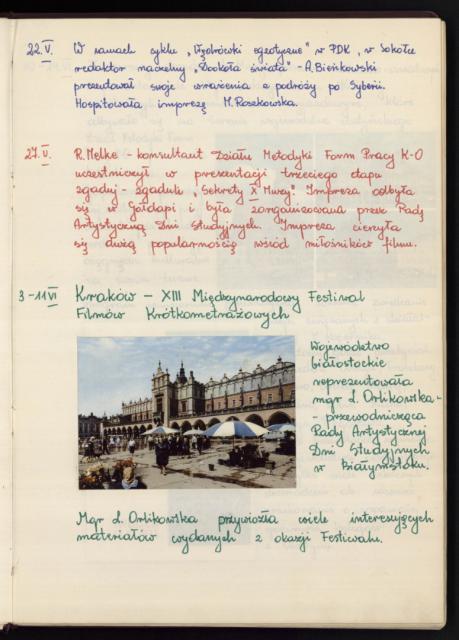 22.V. W ramach cyklu "Wędrówki egzotyczne" w PDK, w Sokółce
redaktor naczelny "Dookoła świata" - A. Bieńkowski
prezentował swoje wrażenia z podróży po Syberii.
Hospitowała imprezę M. Rosekowska.
27.V. R. Melke - konsultant Działu Metodyki Form Pracy K-O
uczestniczył w prezentacji trzeciego etapu
zgaduj - zgaduli "Sekrety X Muzy". Impreza odbyła
się w Gołdapi i była zorganizowana przez Radę
Artystyczną Dni Studyjnych. Impreza cieszyła
się dużą popularnością wśród miłośników filmu.
3-11 VI Kraków - XIII Międzynarodowy Festiwal
Filmów Krótkometrażowych
Województwo
białostockie
reprezentowała
mgr L. Orlikowska -
- przewodnicząca
Rady Artystycznej
Dni Studyjnych
w Białymstoku.
Mgr L. Orlikowska przywiozła wiele interesujących
materiałów wydanych z okazji Festiwalu.